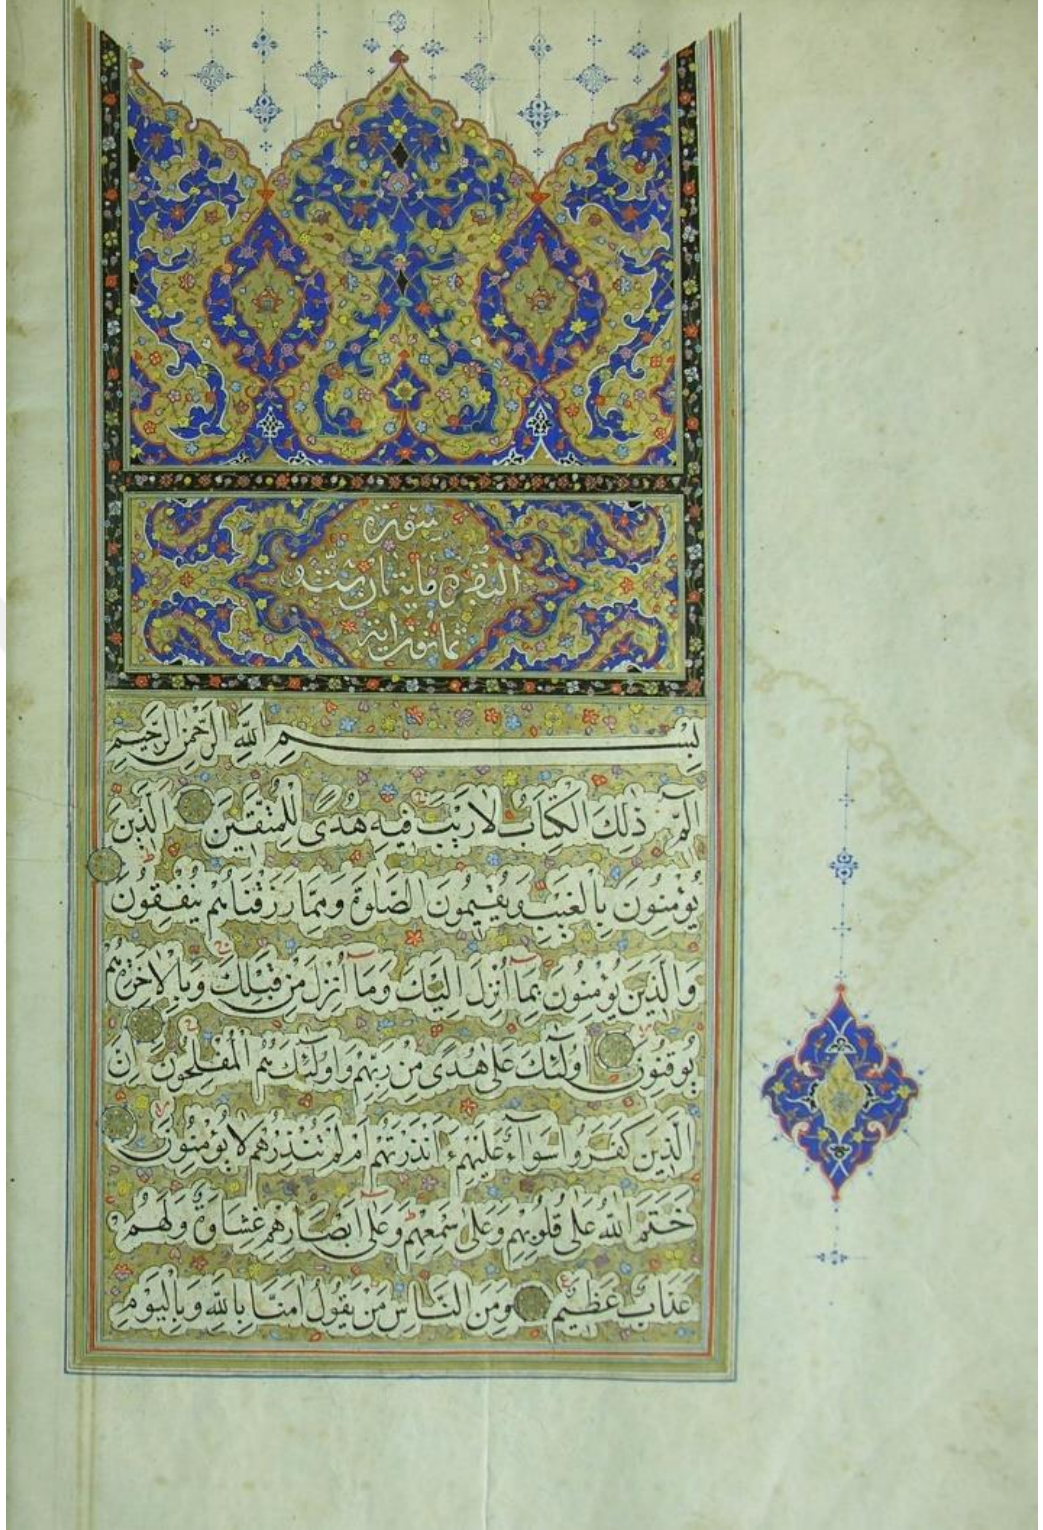 سورة
البقرة مایتان وست
ثمانون اية
بِسْمِ اللَّهِ الرَّحْمٰنِ الرَّحِيمِ
الٓمٓ ذٰلِكَ الْكِتَابُ لَا رَيْبَ فِيهِ هُدًى لِلْمُتَّقِينَ الَّذِينَ
يُؤْمِنُونَ بِالْغَيْبِ وَيُقِيمُونَ الصَّلٰوةَ وَمِمَّا رَزَقْنَاهُمْ يُنْفِقُونَ
وَالَّذِينَ يُؤْمِنُونَ بِمَآ اُنْزِلَ اِلَيْكَ وَمَآ اُنْزِلَ مِنْ قَبْلِكَ وَبِالْاٰخِرَةِ هُمْ
يُوقِنُونَ اُولٰٓئِكَ عَلٰى هُدًى مِنْ رَبِّهِمْ وَاُولٰٓئِكَ هُمُ الْمُفْلِحُونَ اِنَّ
الَّذِينَ كَفَرُوا سَوَآءٌ عَلَيْهِمْ ءَاَنْذَرْتَهُمْ اَمْ لَمْ تُنْذِرْهُمْ لَا يُؤْمِنُونَ
خَتَمَ اللّٰهُ عَلٰى قُلُوبِهِمْ وَعَلٰى سَمْعِهِمْ وَعَلٰٓى اَبْصَارِهِمْ غِشَاوَةٌ وَلَهُمْ
عَذَابٌ عَظِيمٌ وَمِنَ النَّاسِ مَنْ يَقُولُ اٰمَنَّا بِاللّٰهِ وَبِالْيَوْمِ